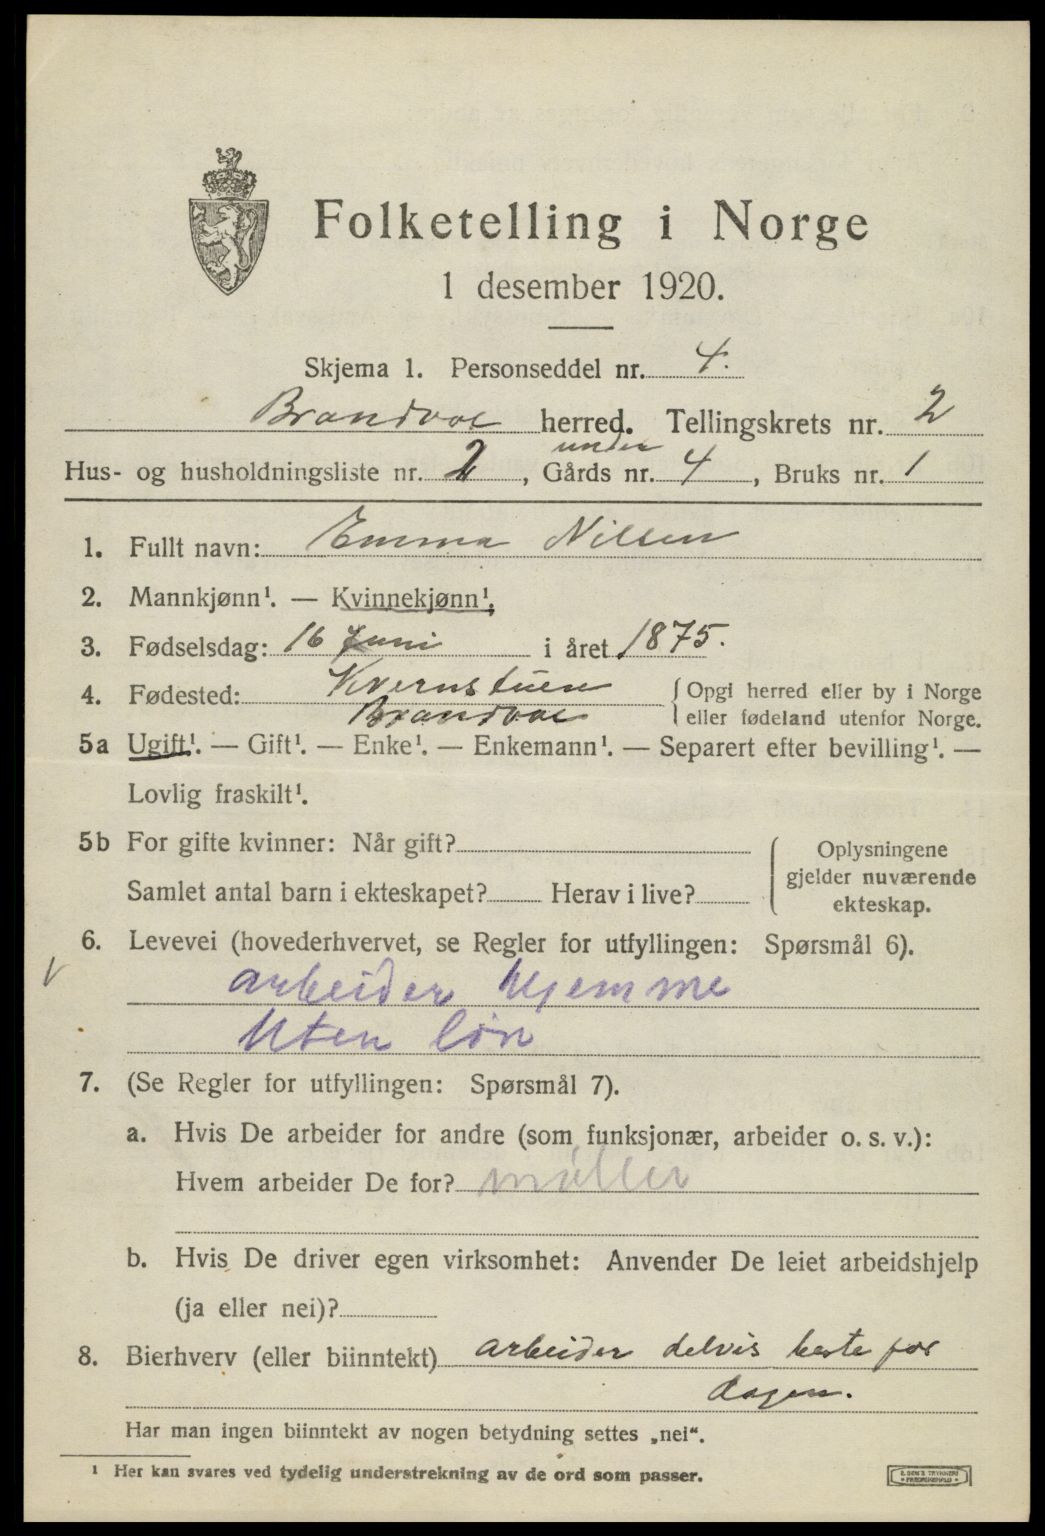 Folketelling i Norge
1 desember 1920.
Skjema 1. Personseddel nr. 4.
Brandvoe herred. Tellingskrets nr. 2
under
Hus- og husholdningsliste nr. 2, Gårds nr. 4, Bruks nr. 1
1. Fullt navn: Emma Nilsen
2. Mannkjønn¹. — Kvinnekjønn¹.
3. Fødselsdag: 16 Juni i året 1875.
4. Fødested: Kvernstuen { Opgi herred eller by i Norge
Brandvoe eller fødeland utenfor Norge.
5a Ugift¹. — Gift¹. — Enke¹. — Enkemann¹. — Separert efter bevilling¹. —
Lovlig fraskilt¹.
5b For gifte kvinner: Når gift? { Oplysningene
gjelder nuværende
Samlet antal barn i ekteskapet? Herav i live?
ekteskap.
6. Levevei (hovederhvervet, se Regler for utfyllingen: Spørsmål 6).
V
arbeider hjemme
Uten løn
7. (Se Regler for utfyllingen: Spørsmål 7).
a. Hvis De arbeider for andre (som funksjonær, arbeider o. s. v.):
Hvem arbeider De for? møller
b. Hvis De driver egen virksomhet: Anvender De leiet arbeidshjelp
(ja eller nei)?
8. Bierhverv (eller biinntekt) arbeider delvis borte for
dagen.
Har man ingen biinntekt av nogen betydning settes „nei“.
¹ Her kan svares ved tydelig understrekning av de ord som passer.
E. SEM'S TRYKKERI
FREDRIKSHALD